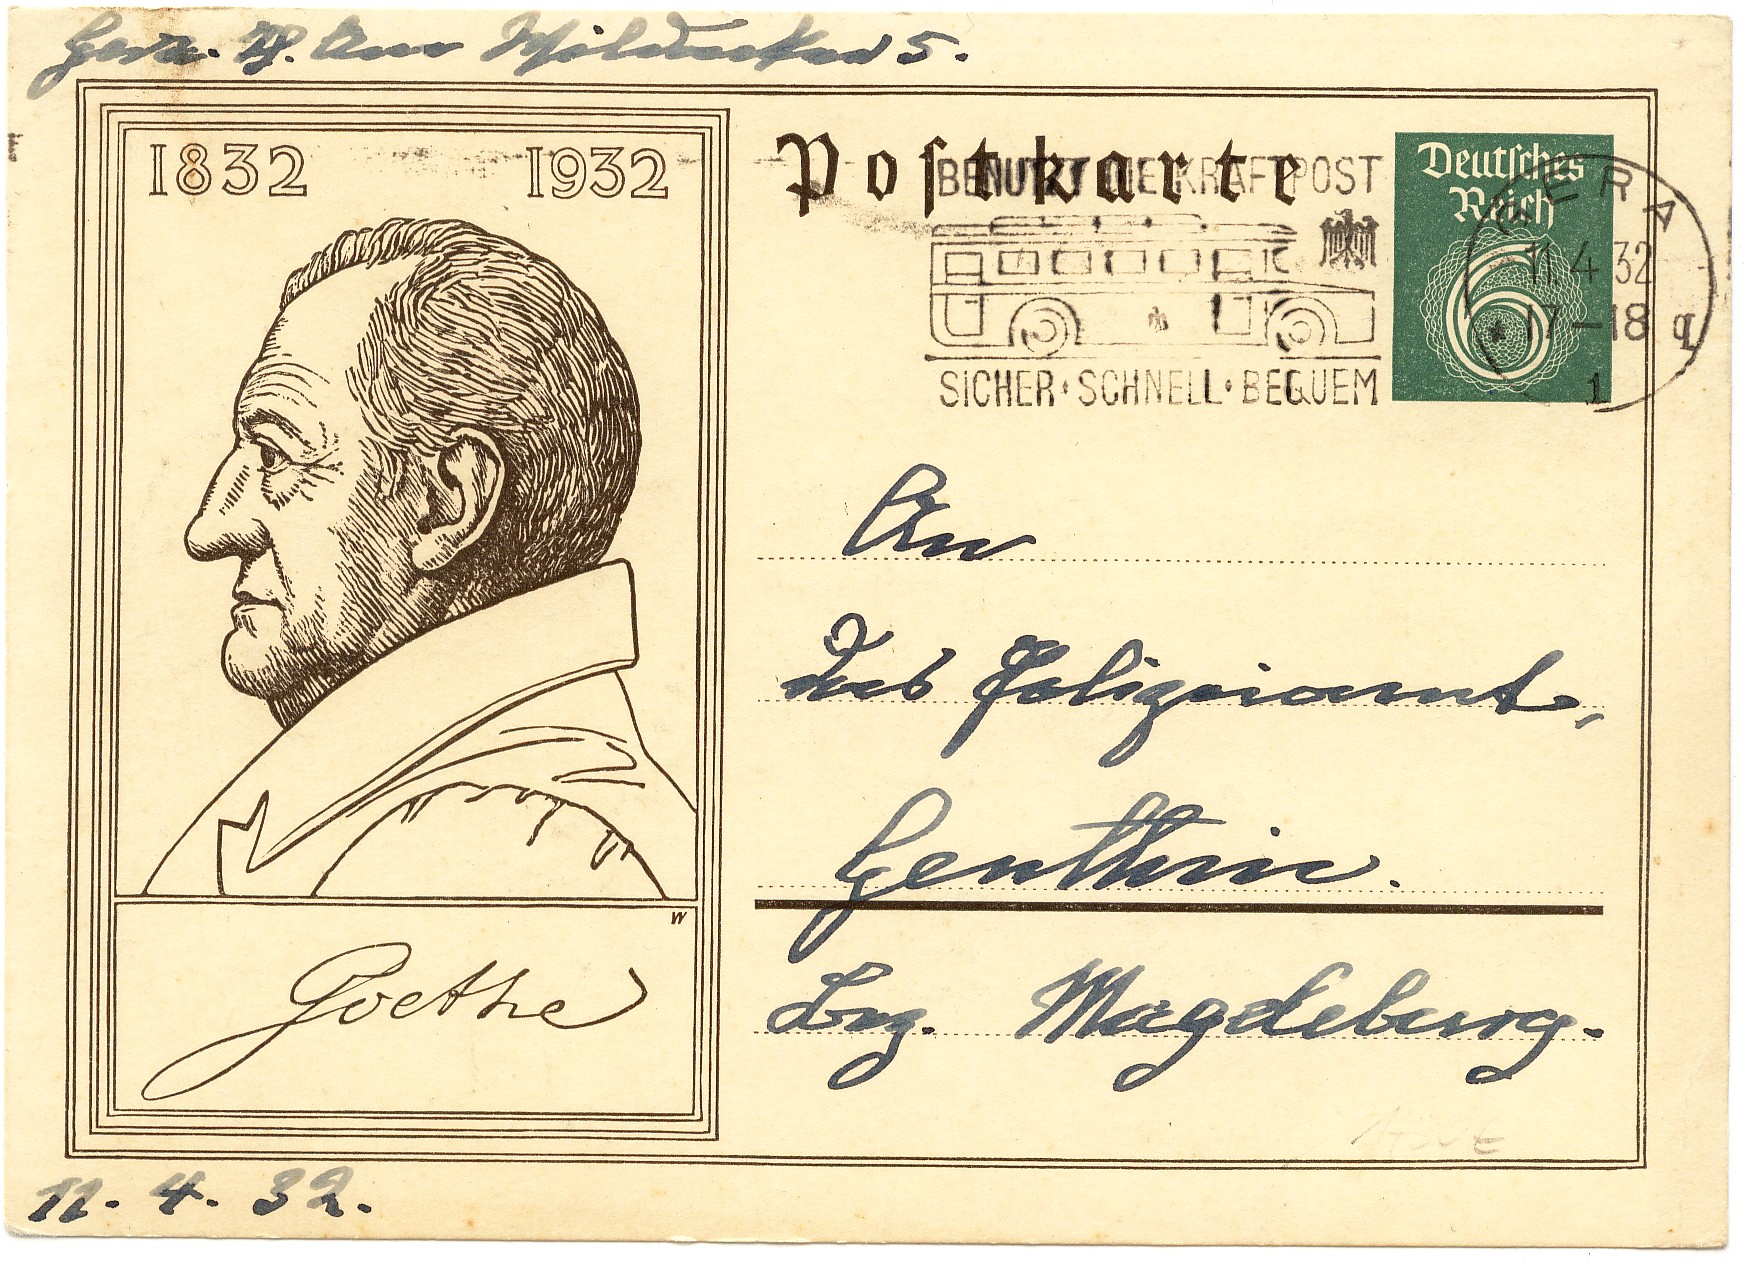 Gera. Am 5.
1832 1932
Postkarte
BENUTZT DIE KRAFTPOST
SICHER · SCHNELL · BEQUEM
Deutsches
Reich
6
GERA
11.4.32
17-18
1
An
das Polizeiamt,
Genthin.
Bez. Magdeburg.
W
Goethe
11. 4. 32.